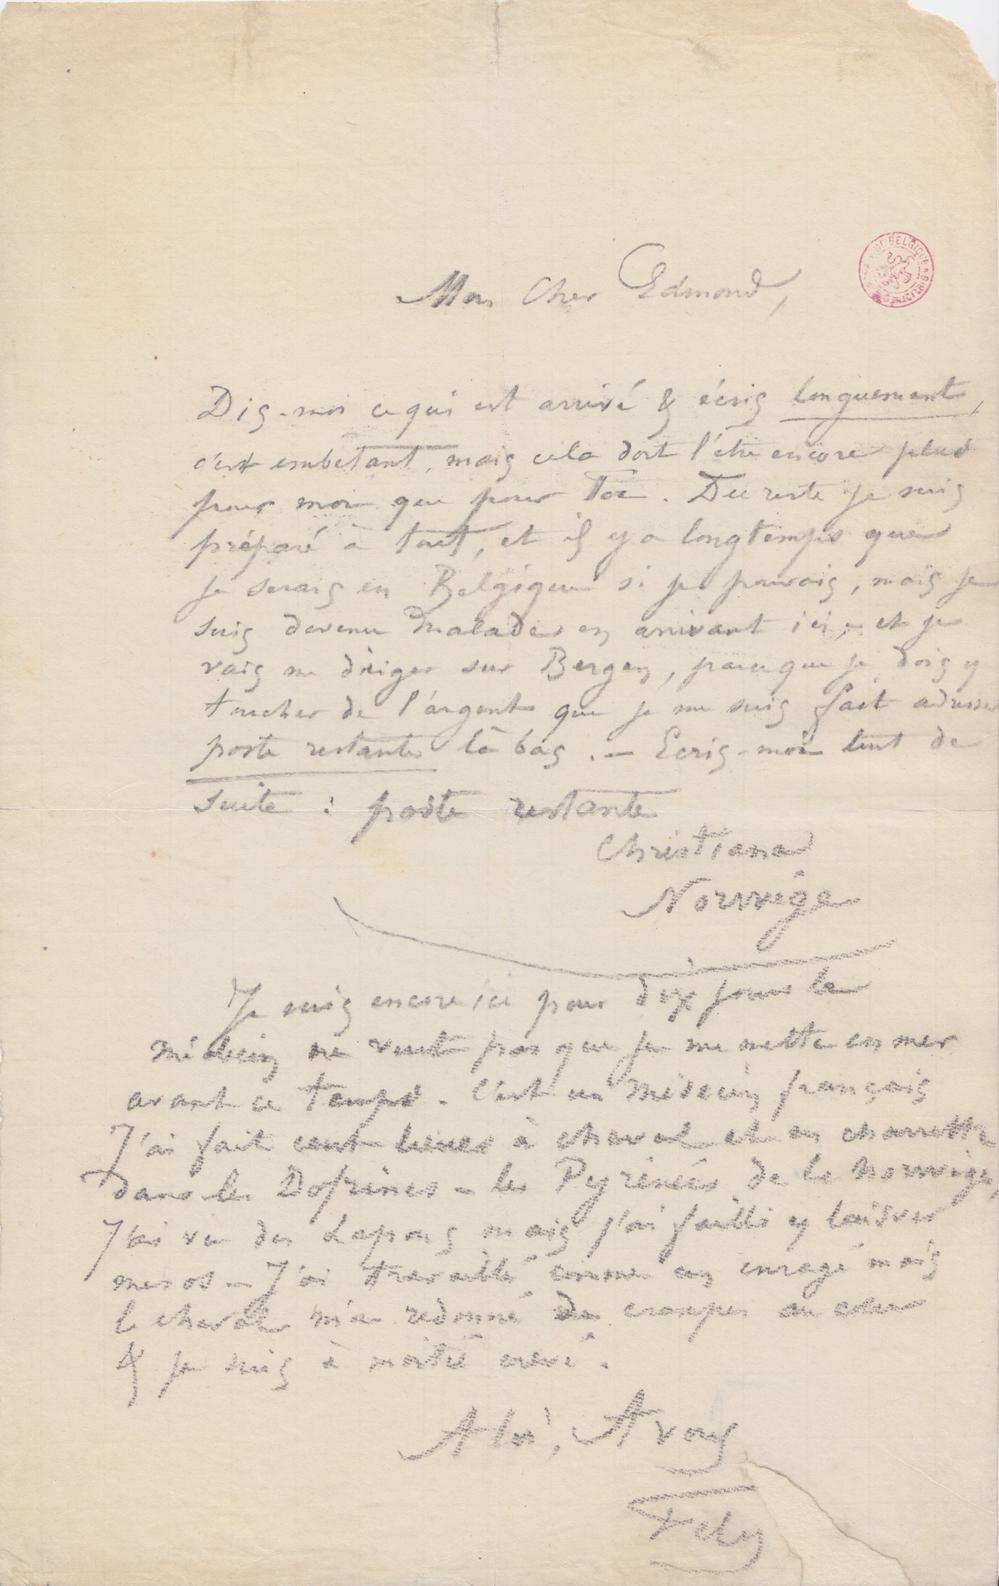 Mon Cher Edmond,
Dis-moi ce qui est arrivé & écris longuement,
c'est embêtant, mais cela doit l'être encore plus
pour moi que pour Toi. Du reste je suis
préparé à tout, et il y a longtemps que
je serais en Belgique si je pouvais, mais je
suis devenu malade en arrivant ici, et je
vais me diriger sur Bergen, parce que je dois y
toucher de l'argent que je me suis fait adresser
poste restante là bas. — Ecris-moi tout de
suite : poste restante
Christiana
Norwège
Je suis encore ici pour dix jours le
médecin ne veut pas que je me mette en mer
avant ce temps. C'est un médecin français
J'ai fait cent lieues à cheval et en charrette
dans les Dofrines - les Pyrénées de la Norwige,
J'ai vu des Lapons mais j'ai failli y laisser
mes os — J'ai travaillé comme un enragé mais
l cheval m'a redonné des crampes au cœur
& je suis à moitié crevé.
A toi, A vous
Fély